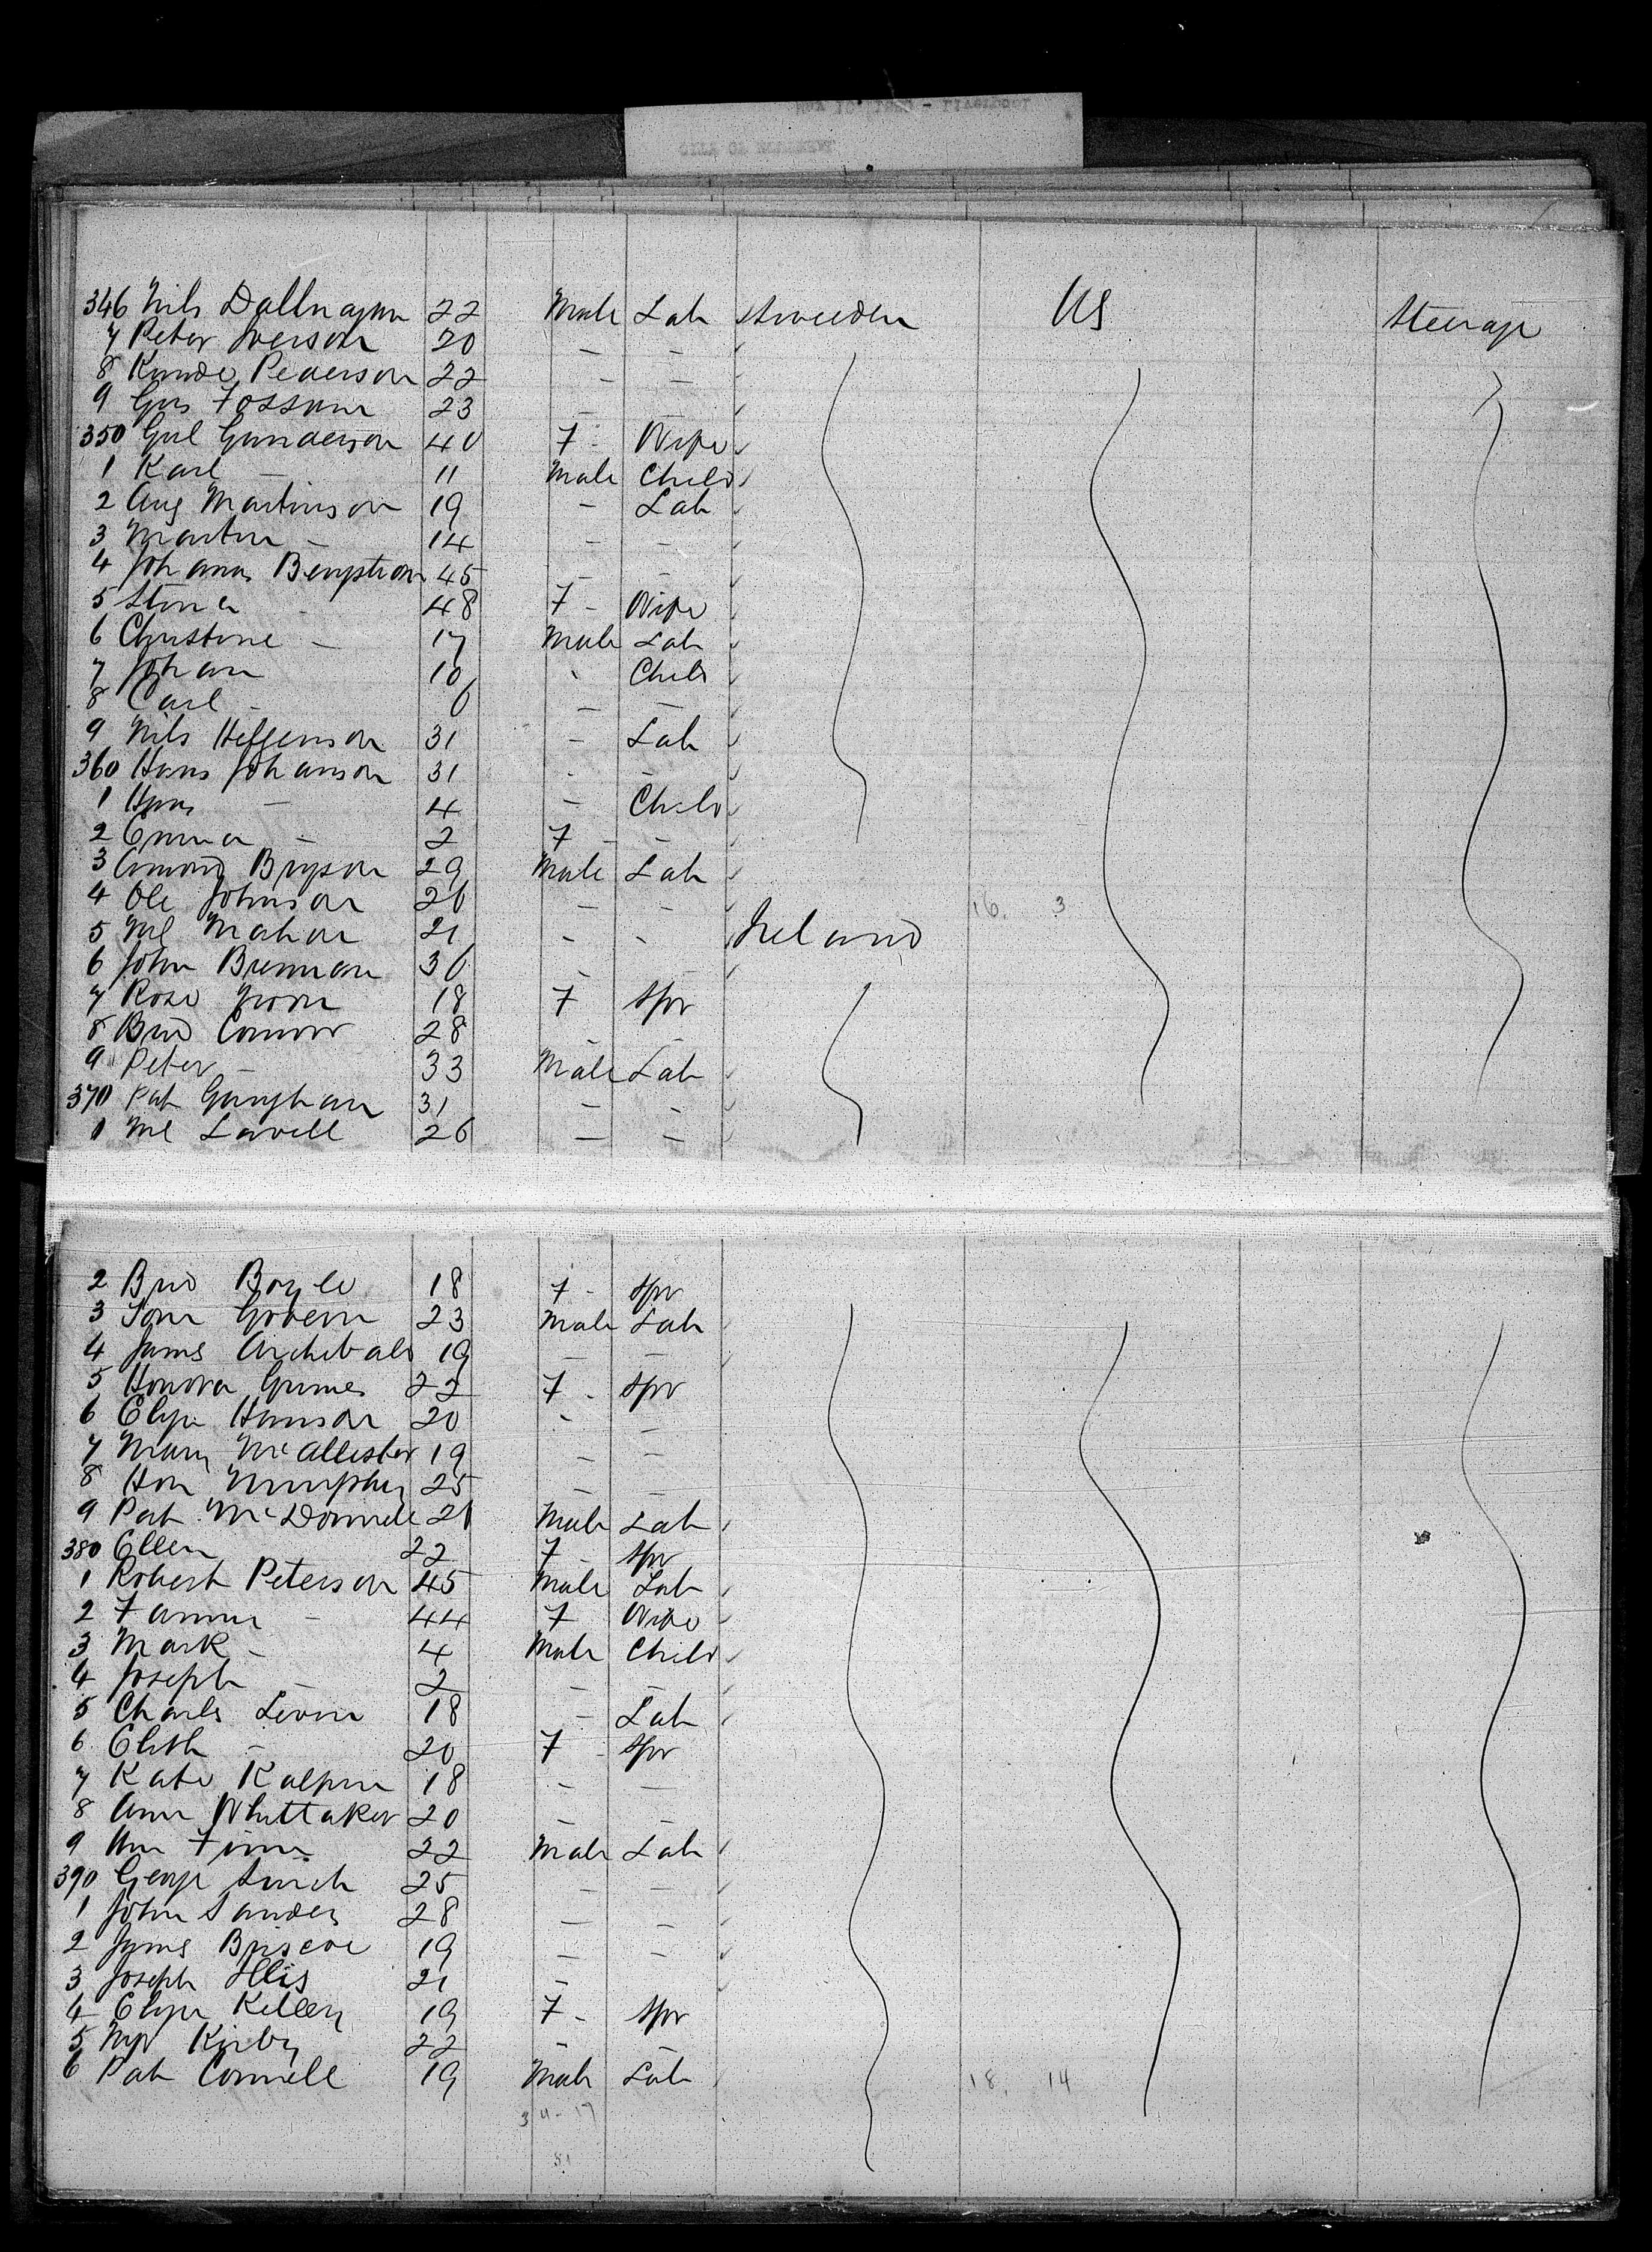 346 Nils 22 Male Lab Sweeden US Steerage
7 Peter Iverson 20 — —
8 Knude Pederson 22 — —
9 Gus Fossum 23 — —
350 Gul Gunderson 40 F - Wife
1 Karl — 11 Male Child
2 Aug Martinson 19 - Lab
3 Martin - 14 - -
4 Johanns 45 - -
5 Stina 48 F - Wife
6 Christine - 17 Male Lab
7 Johan 10 - Child
8 Carl - 6 — —
9 Nils 31 - Lab
360 Hans Johanson 31 - -
1 Hans — 4 - Child
2 Emma - 2 F - -
3 29 Male Lab
4 Ole Johnson 26 — - 16. 3
5 Ml Mahon 21 - - Ireland
6 John Brennan 36 - -
7 Rose 18 F Spr
8 Brid Connor 28 - -
9 Peter - 33 Male Lab
370 Pat 31 — -
1 Ml Lavell 26 — —
2 Brid Boyle 18 F - Spr
3 Govern 23 Male Lab
4 James Archibald 19 — —
5 Honora Grimes 22 F - Spr
6 Eliza 20 - —
7 Mary McAllister 19 - —
8 Hon Murphy 25 — —
9 Pat McDonnell 21 Male Lab
380 Ellen 22 F Spr
1 Robert Peterson 45 Male Lab
2 Fanny - 44 F Wife
3 Mark - 4 Male Child
4 Joseph - 2 - -
5 Charles 18 - Lab
6 Elizth - 20 F - Spr
7 Kate 18 - —
8 Ann Whittaker 20 — -
9 22 Male Lab
390 George 25 — —
1 John Sanders 28 — -
2 James Briscoe 19 — -
3 Joseph Illis 21 - -
4 Eliza Kelley 19 F - Spr
5 Kirby 22 - -
6 Pat Connell 19 Male Lab 18. 14